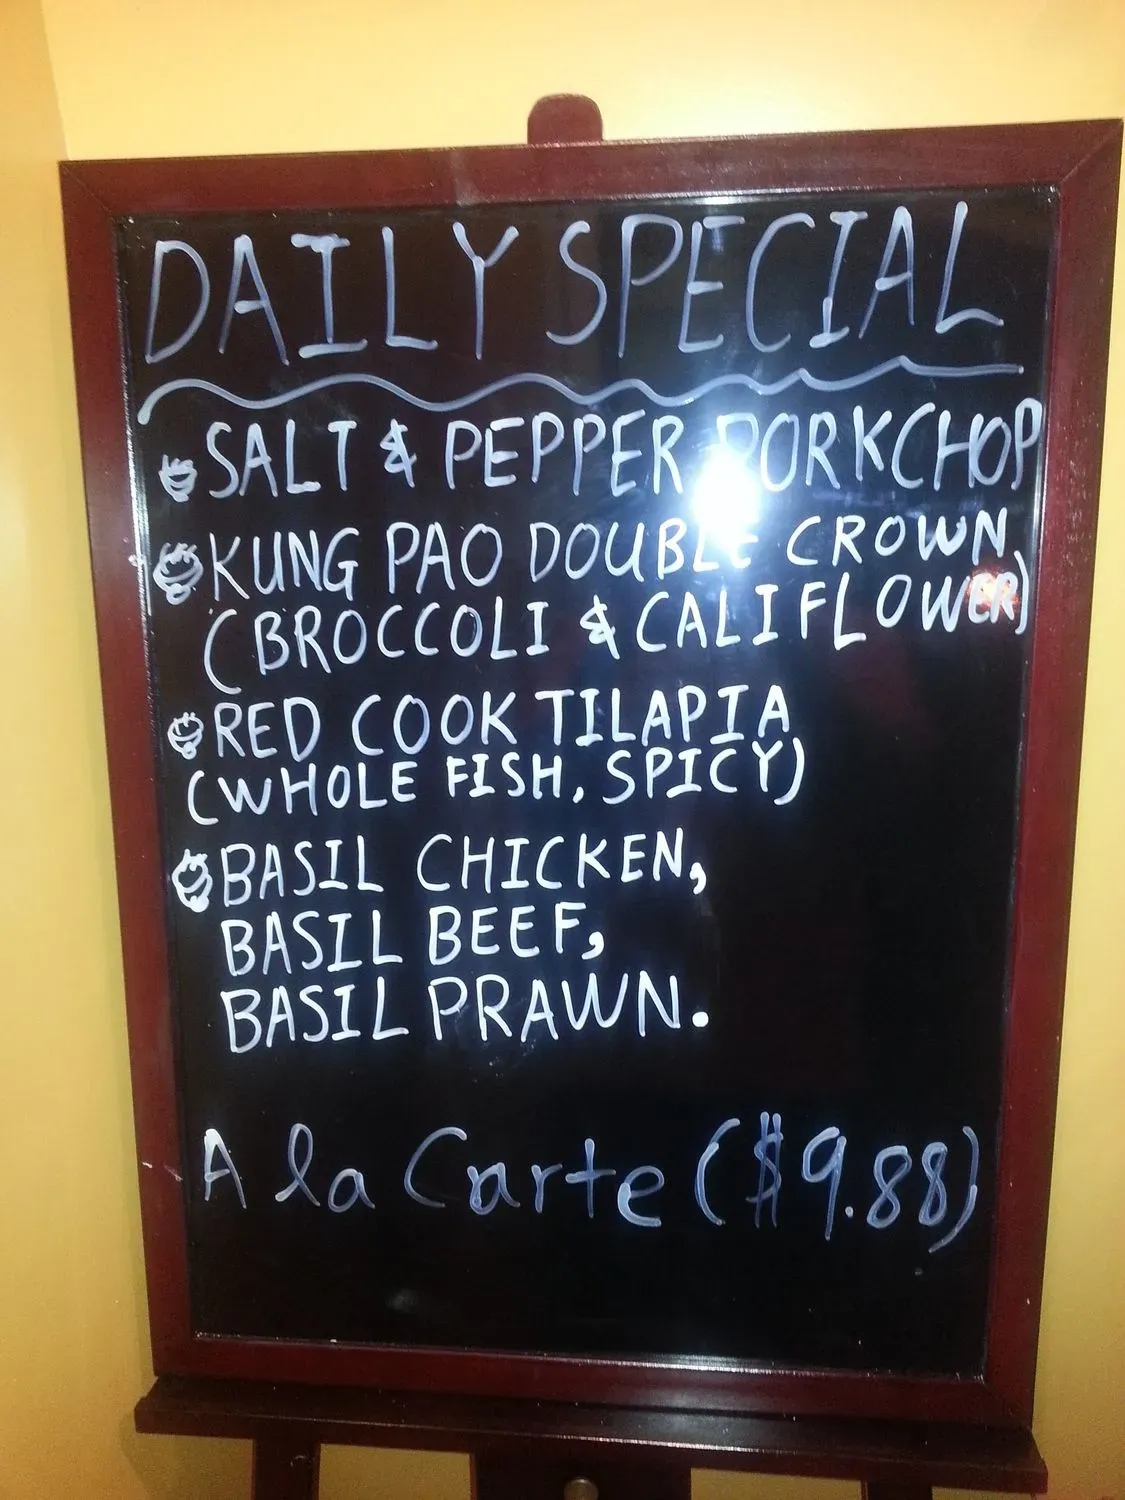 DAILY SPECIAL
SALT & PEPPER PORKCHOP
KUNG PAO DOUBLE CROWN,
(BROCCOLI & CALIFLOWER)
RED COOK TILAPIA
(WHOLE FISH, SPICY)
BASIL CHICKEN,
BASIL BEEF,
BASIL PRAWN.
A la Carte ($9.88)